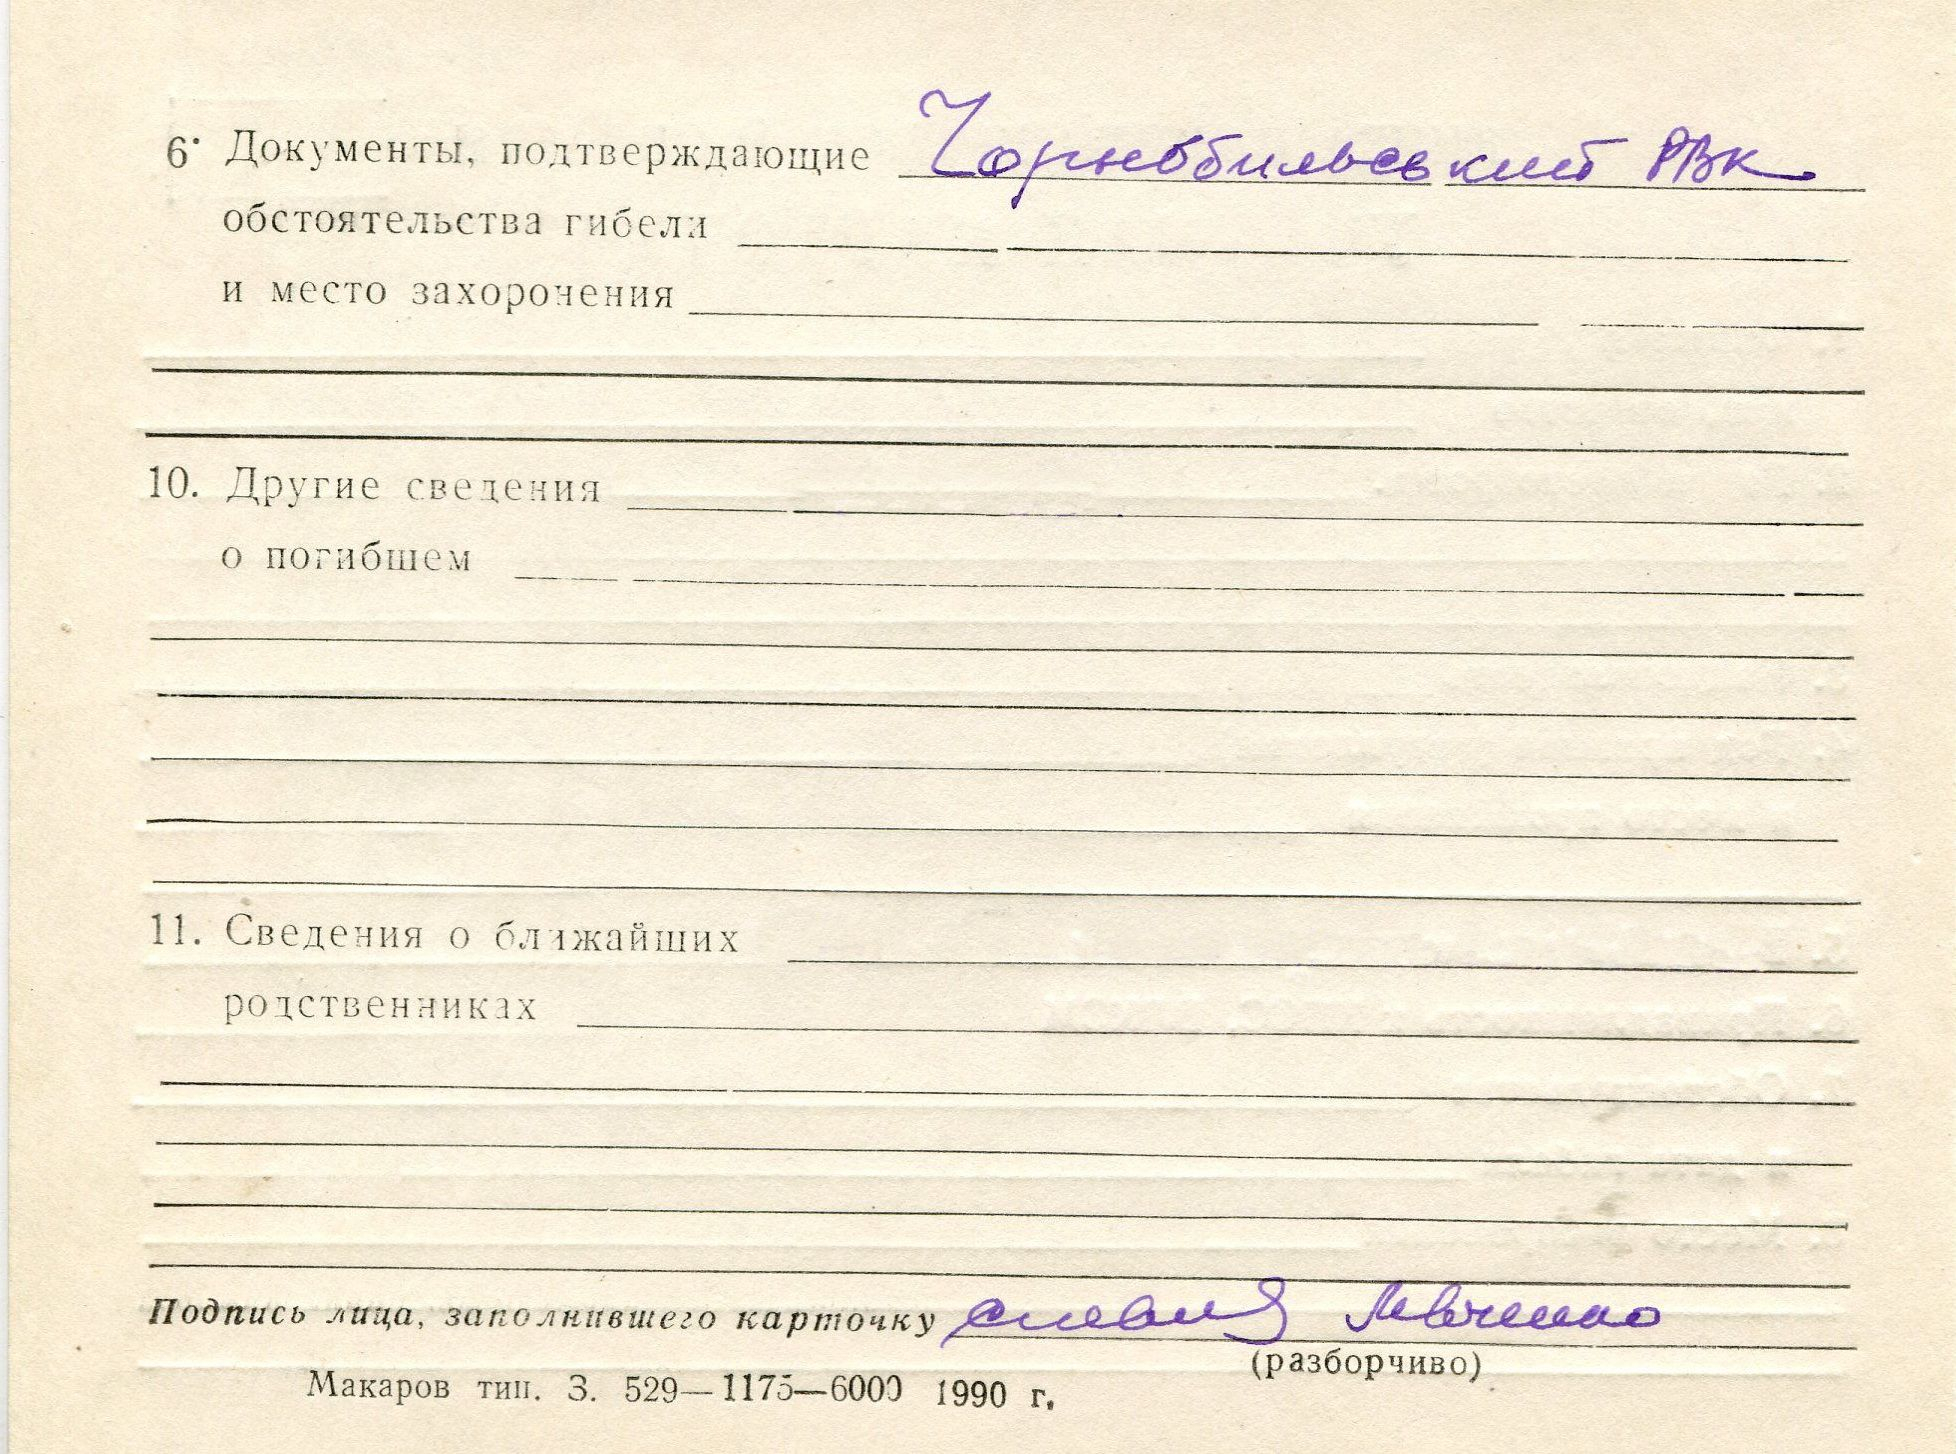 6. Документы, подтверждающие Чорнобильський РВК
обстоятельства гибели
и место захоронения
10. Другие сведения
о погибшем
11. Сведения о ближайших
родственниках
Подпись лица, заполнившего карточку
(разборчиво)
Макаров тип. З. 529—1175—6000 1990 г.